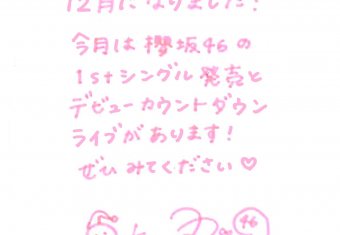 12月になりました!
今月は 櫻坂46 の
1stシングル 発売と
デビューカウントダウン
ライブがあります!
ぜひ みてください♡
46